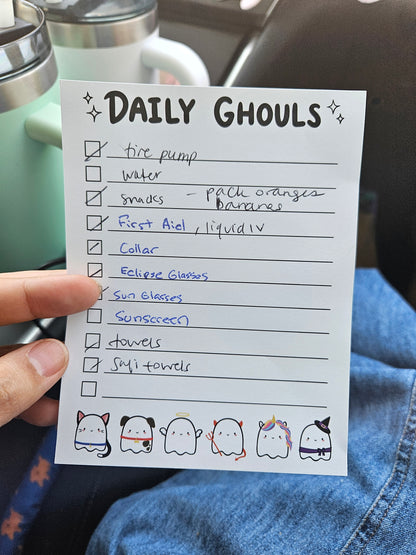 DAILY GHOULS
tire pump
water
snacks - pack oranges
bananas
First Aid, liquid IV
Collar
Eclipse Glasses
Sun Glasses
Sunscreen
towels
Safi towels